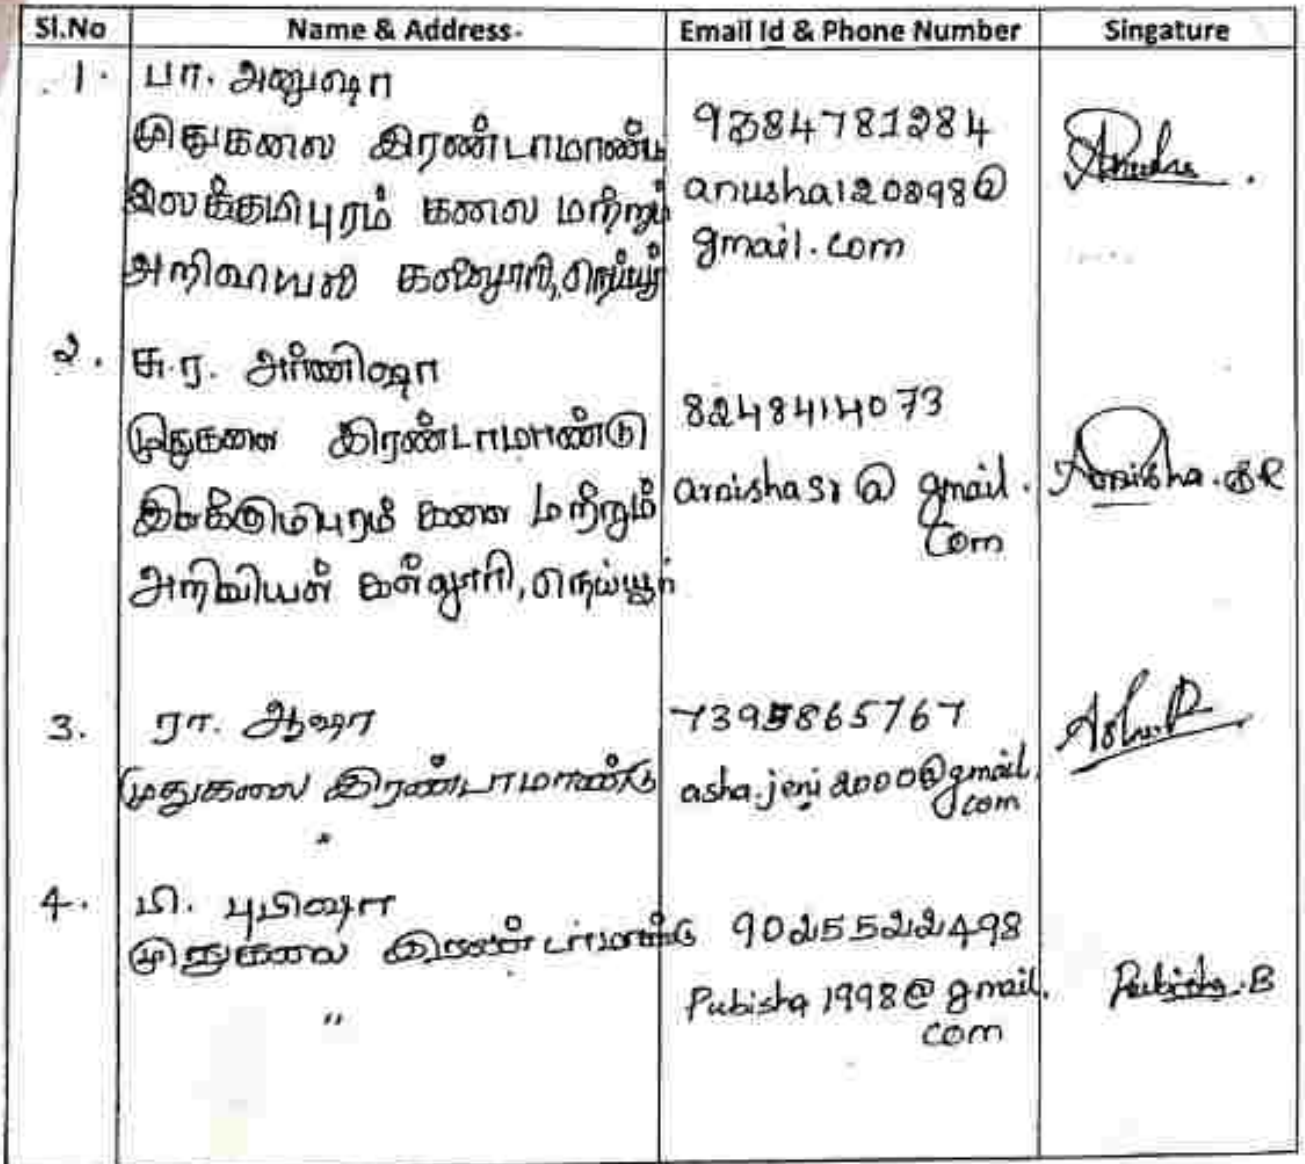 Sl.No Name & Address. Email Id & Phone Number Singature
1. பா. அனுஷா
முதுகலை இரண்டாமாண்டு
இலக்கமிபுரம் கலை மற்றும்
அறிவியல் கல்லூரி, நெய்யூர்
9384781284
anusha120898@
gmail.com
2. சு.ர. அர்னிஷா
முதுகலை இரண்டாமாண்டு
கலை மற்றும்
அறிவியல் கல்லூரி, நெய்யூர்
8248414073
arnishasr@gmail.
com
Arnisha.SR
3. ரா. ஆஷா
முதுகலை இரண்டாமாண்டு
"
7395865767
asha.jeni2000@gmail.
com
Asha.R
4. பி. புபிஷா
முதுகலை இரண்டாமாண்டு
"
9025522498
Pubisha1998@gmail.
com
Pubisha.B